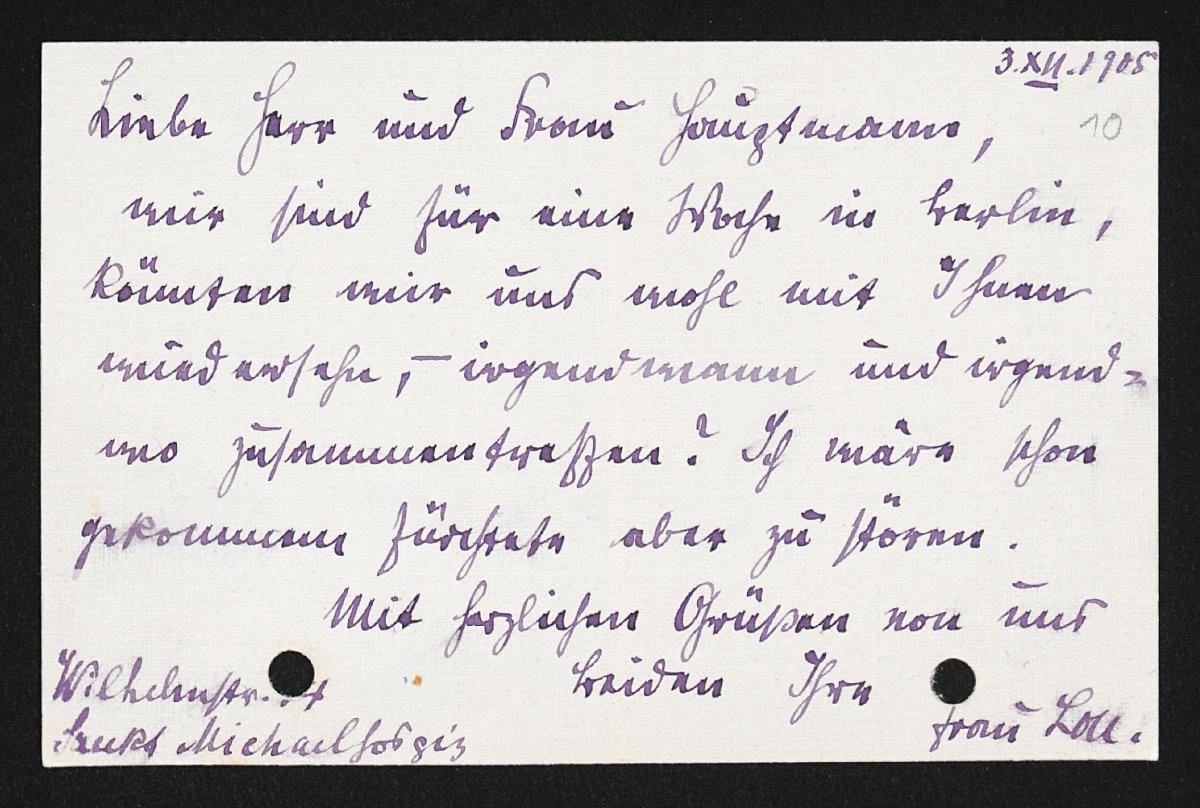 3.XII.1905
10
Liebe Herr und Frau Hauptmann,
wir sind für eine Woche in Berlin,
könnten wir uns wohl mit Ihnen
wiedersehn, – irgendwann und irgend=
wo zusammentreffen? Ich wäre schon
gekommen fürchtete aber zu stören.
Mit herzlichen Grüßen von uns
beiden Ihre
Frau Loll.
Wilhelmstr.
Sankt Michaelhospiz